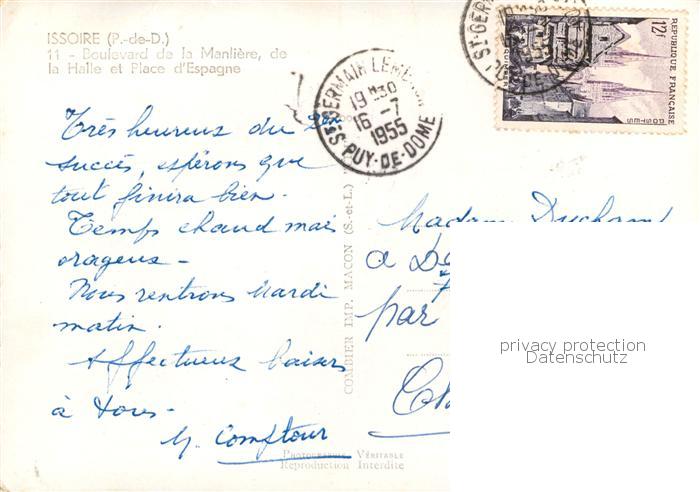 ISSOIRE (P.-de-D.)
11 - Boulevard de la Manlière, de
la Halle et Place d'Espagne
ST GERMAIN LEMBRON
19H30
16-7
1955
PUY-DE-DOME
12F
REPUBLIQUE FRANÇAISE
Très heureux du
succès, espérons que
tout finira bien.
Temps chaud mais
orageux -
Nous rentrons Mardi
matin.
Affectueux baisers
à tous -
M. Comptour
COMBIER IMP. MACON (S.-et-L.)
Madame
a
par
PHOTOGRAPHIE VÉRITABLE
Reproduction Interdite
privacy protection
Datenschutz